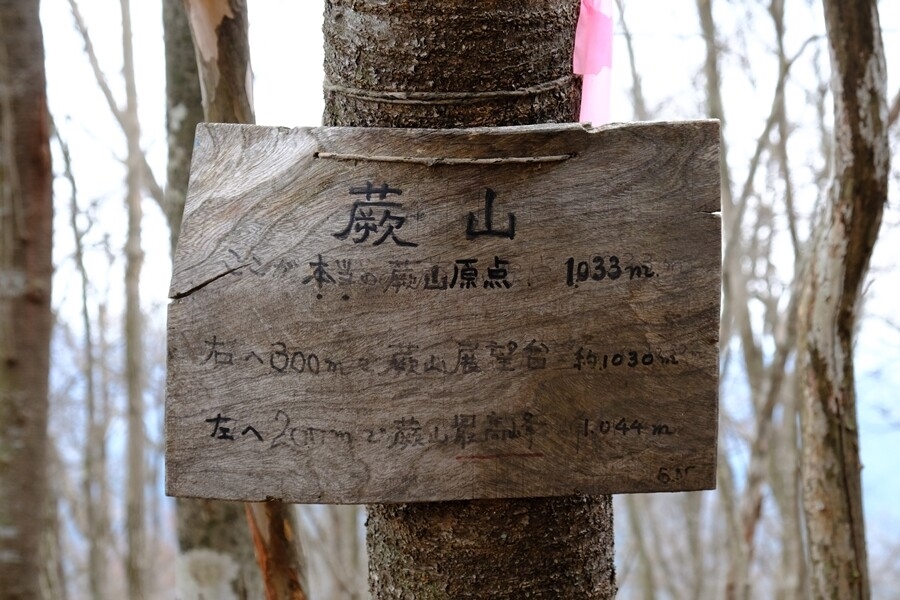 蕨山
ココが本当の蕨山原点 1.033m
右へ300mで蕨山展望台 約1030m
左へ200mで蕨山最高峰 1.044m